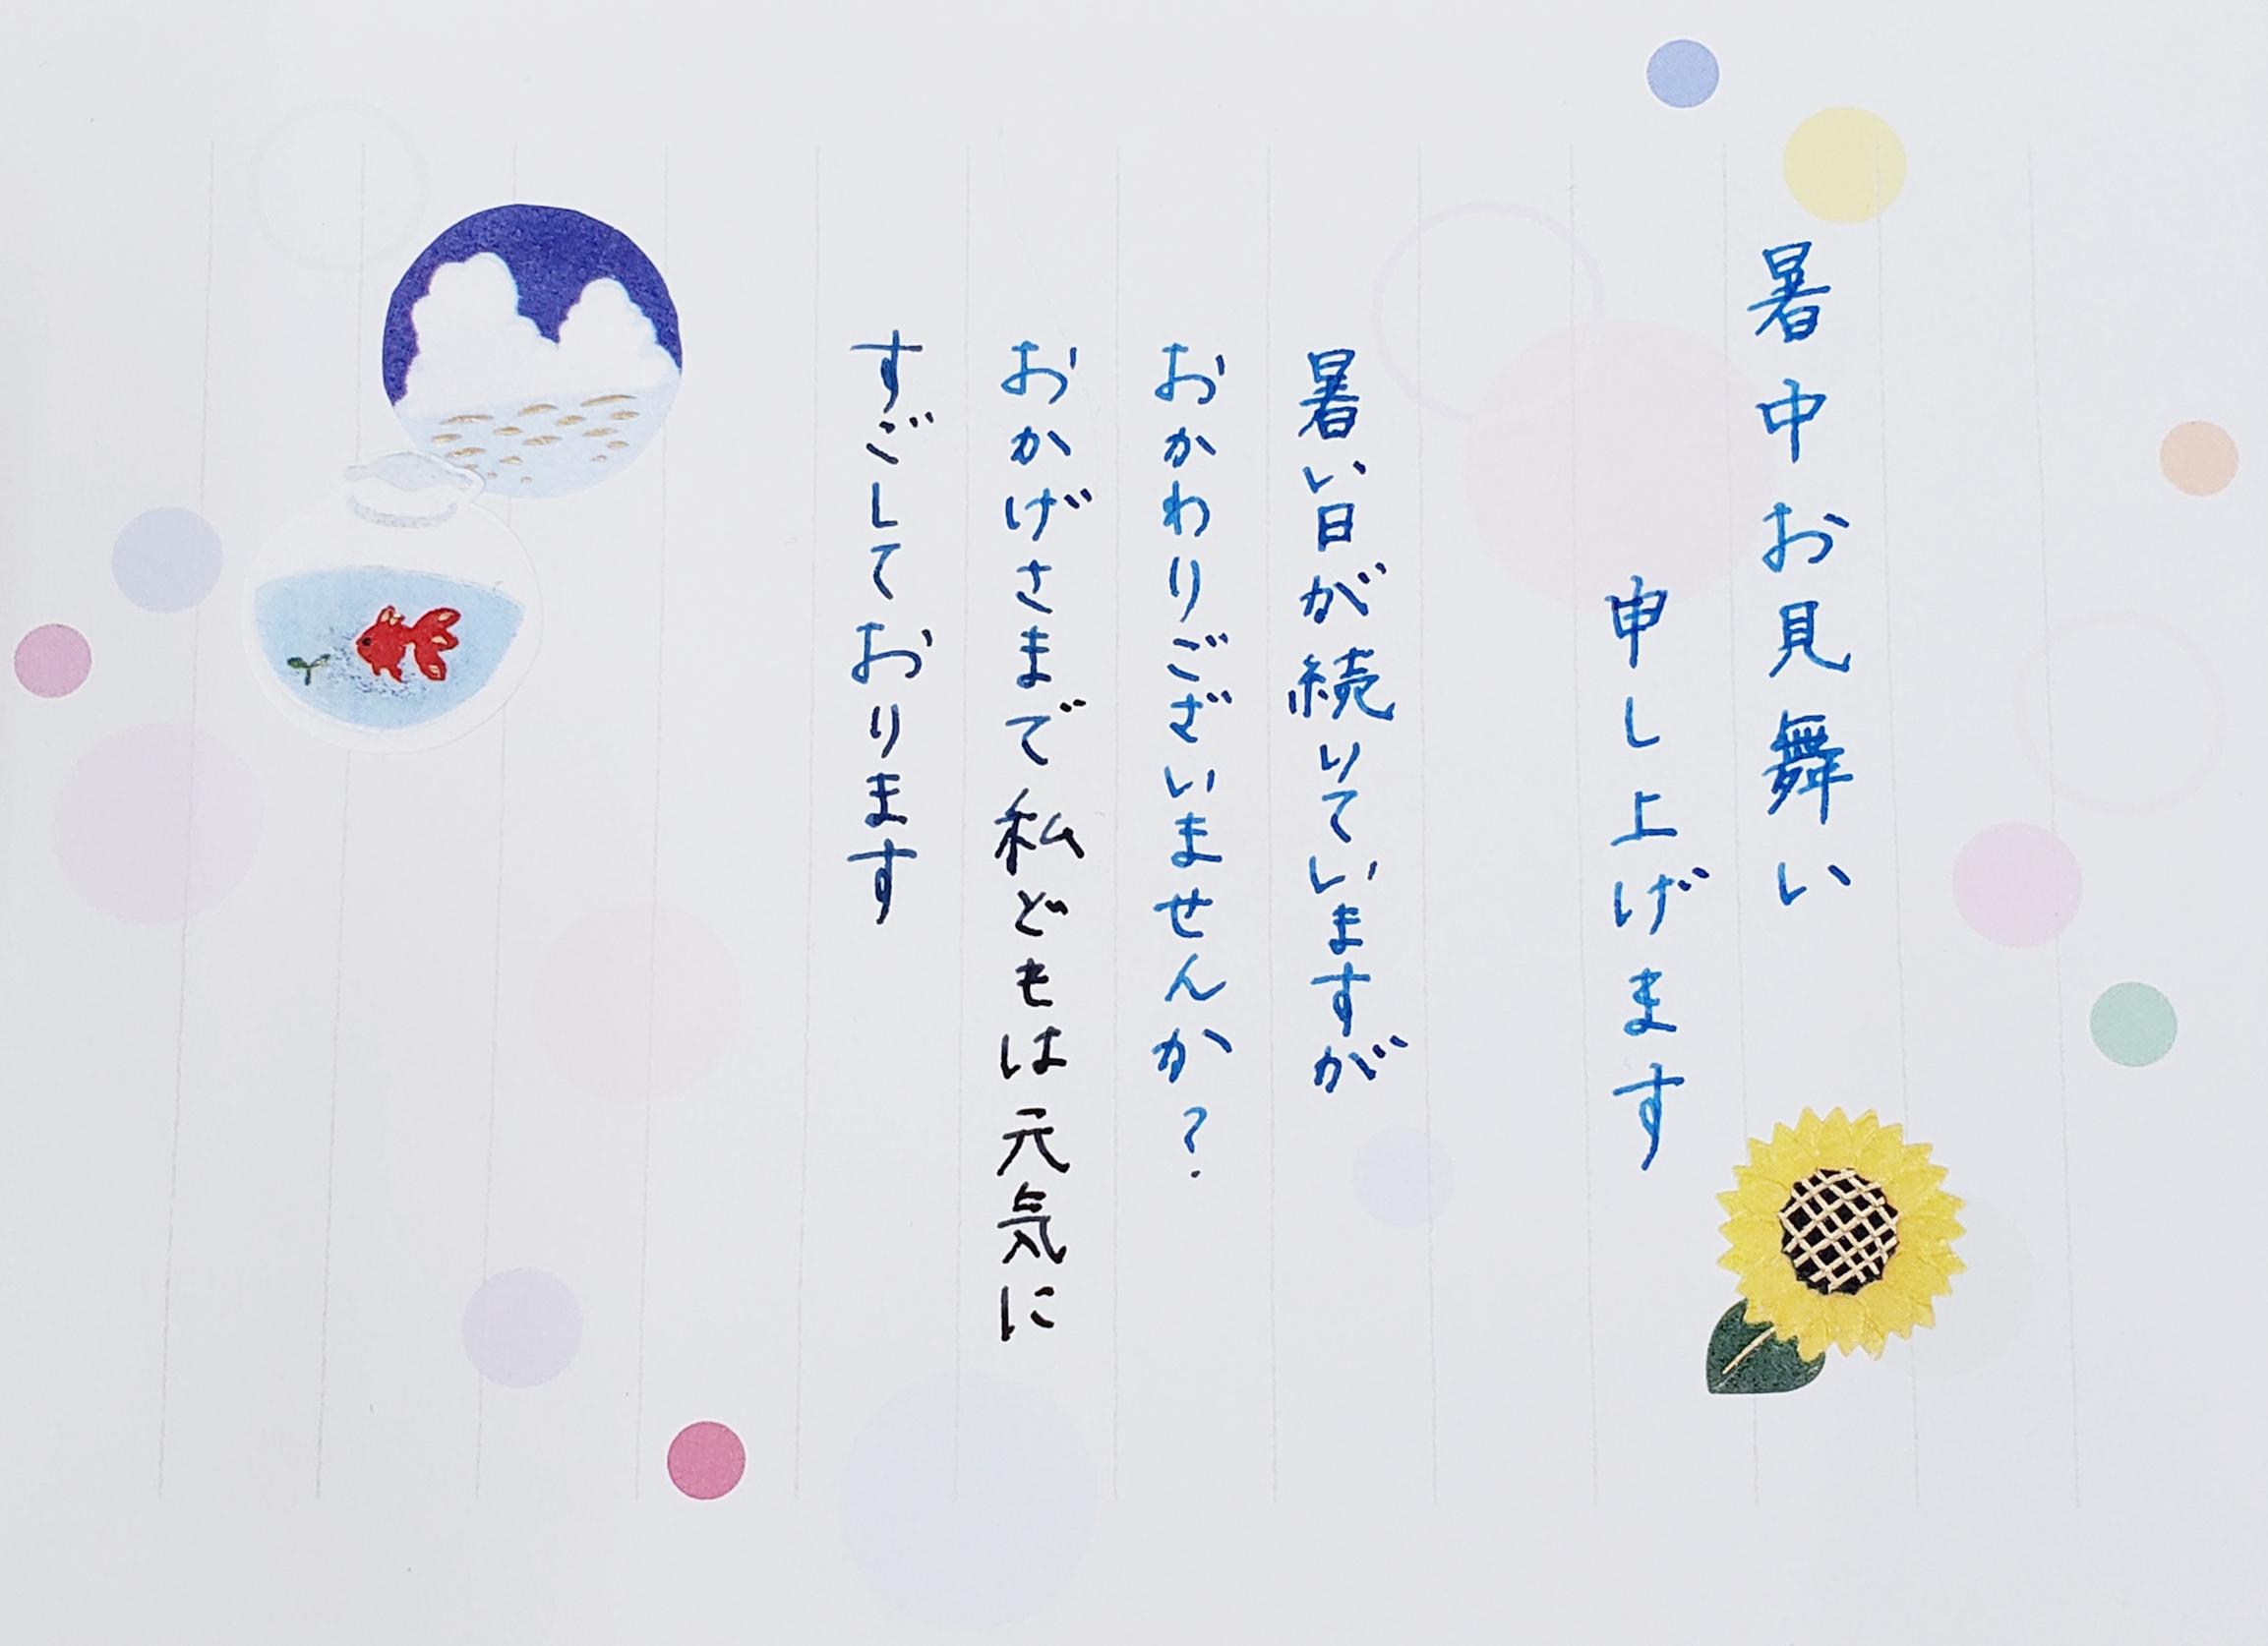 暑中お見舞い
申し上げます
暑い日が続いていますが
おかわりございませんか?
おかげさまで私どもは元気に
すごしております